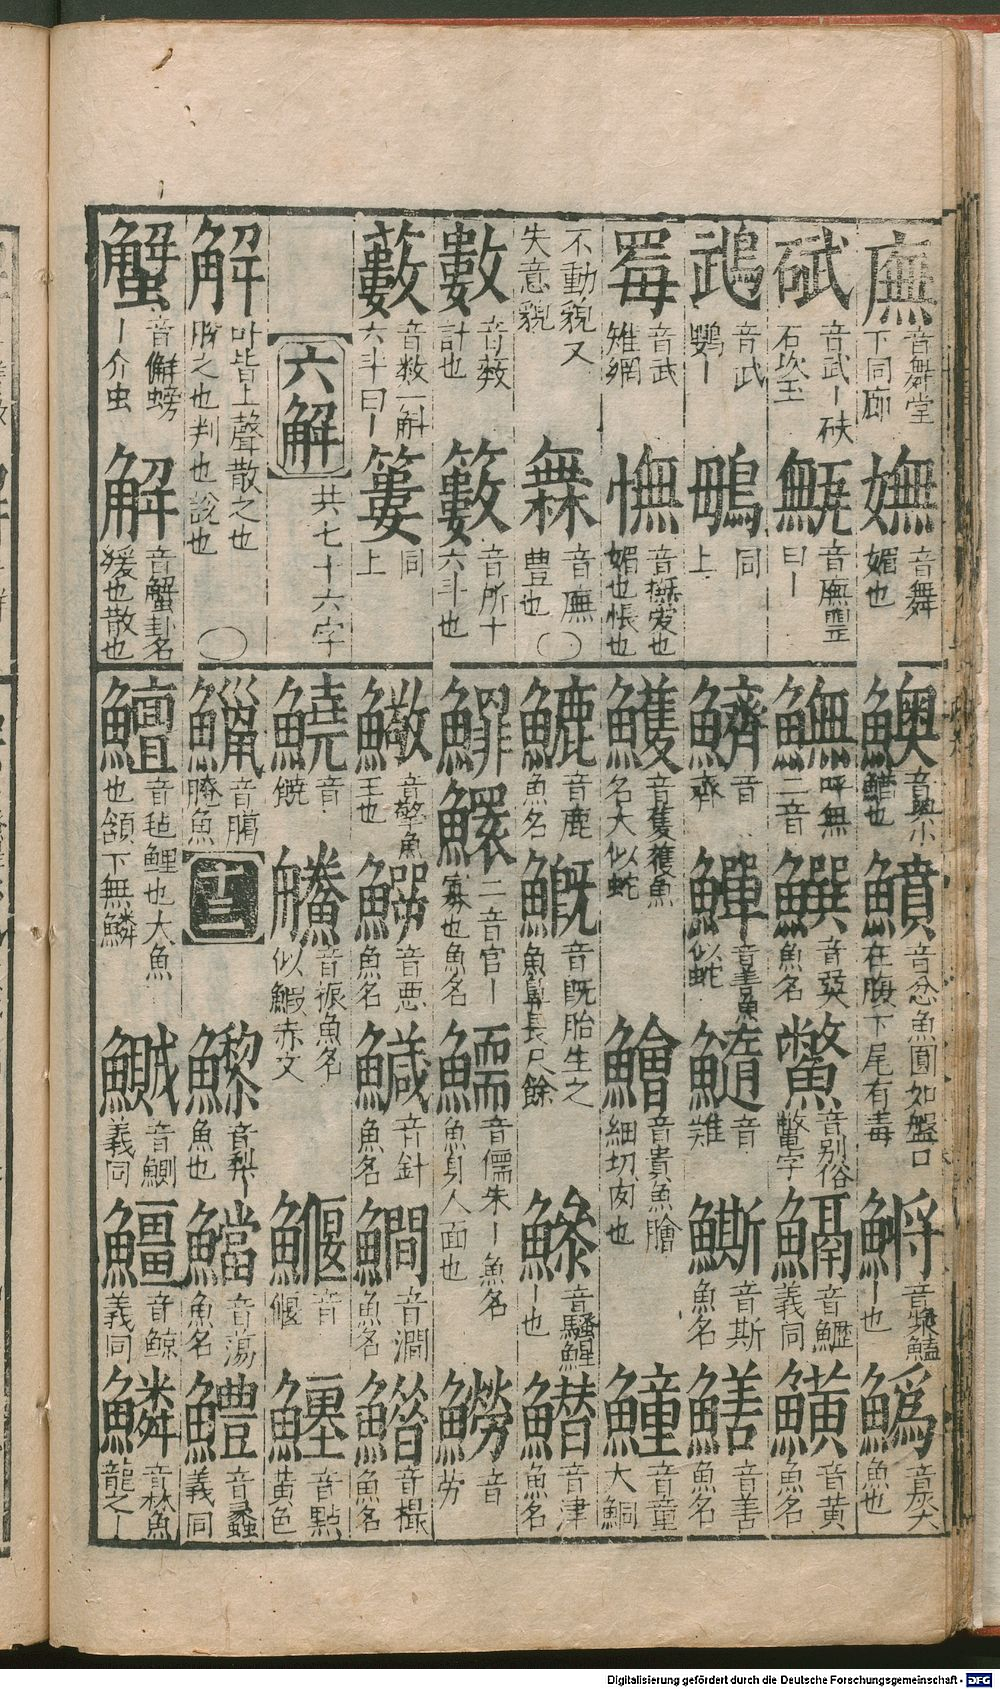 廡 音舞堂下同廊 嫵 音舞媚也
碔 音武丨砆石次玉 甒 音廡罌曰丨
鵡 音武鸚丨 鴄 同上
䍢 音武雉網 憮 音撫愛也媚也悵也
不動貌又失意貌 橆 音廡豊也 〇
數 音薮計也 籔 音所十六斗也
藪 音数一斛六斗曰丨 簍 同上
六解 共七十六字
解 叶皆上聲散之也脫之也判也說也 〇
蟹 音懈螃丨介虫 解 音蟹卦名獲也散也
鱮 音與小鱃也 鱝 音忿魚圓如盤口在腹下尾有毒 鱂 音將鱧丨也 鰞 音灰大魚也
鱖 呼無二音 鱮 音奠魚名 鱉 音別俗鼈字 鬲 音鱺義同 鱑 音黃魚名
鱭 音齊 鱓 音善魚似蛇 隨 音雖 鱗 音斯魚名 鱔 音善魚名
鱯 音隻獲魚名大似蛇 鱠 音貴魚膾細切肉也 鱣 音童大鮦
鏕 音鹿魚名 鱀 音既胎生之魚鼻長尺餘 鰺 音騷鯹丨也 鱏 音津魚名
鰥 鱞 二音官丨寡也魚名 鱬 音儒朱丨魚名魚身人面也 鱜 音劳
鱤 音擎魚王也 鱷 音悪魚名 鱵 音針魚名 鱂 音澗魚名 鰽 音榗魚名
鱙 音饒 鰧 音振魚名似鰕赤文 鰋 音偃 鱷 音點黄色
鱲 音臈腌魚 十三 鱺 音梨丨魚也 鱨 音蕩魚名 鱧 音蠡義同
鱣 音毡鯉也大魚也頷下無鱗 鱡 音鰂義同 鱷 音鯨義同 鱗 音林魚龍之丨
Digitalisierung gefördert durch die Deutsche Forschungsgemeinschaft - DFG